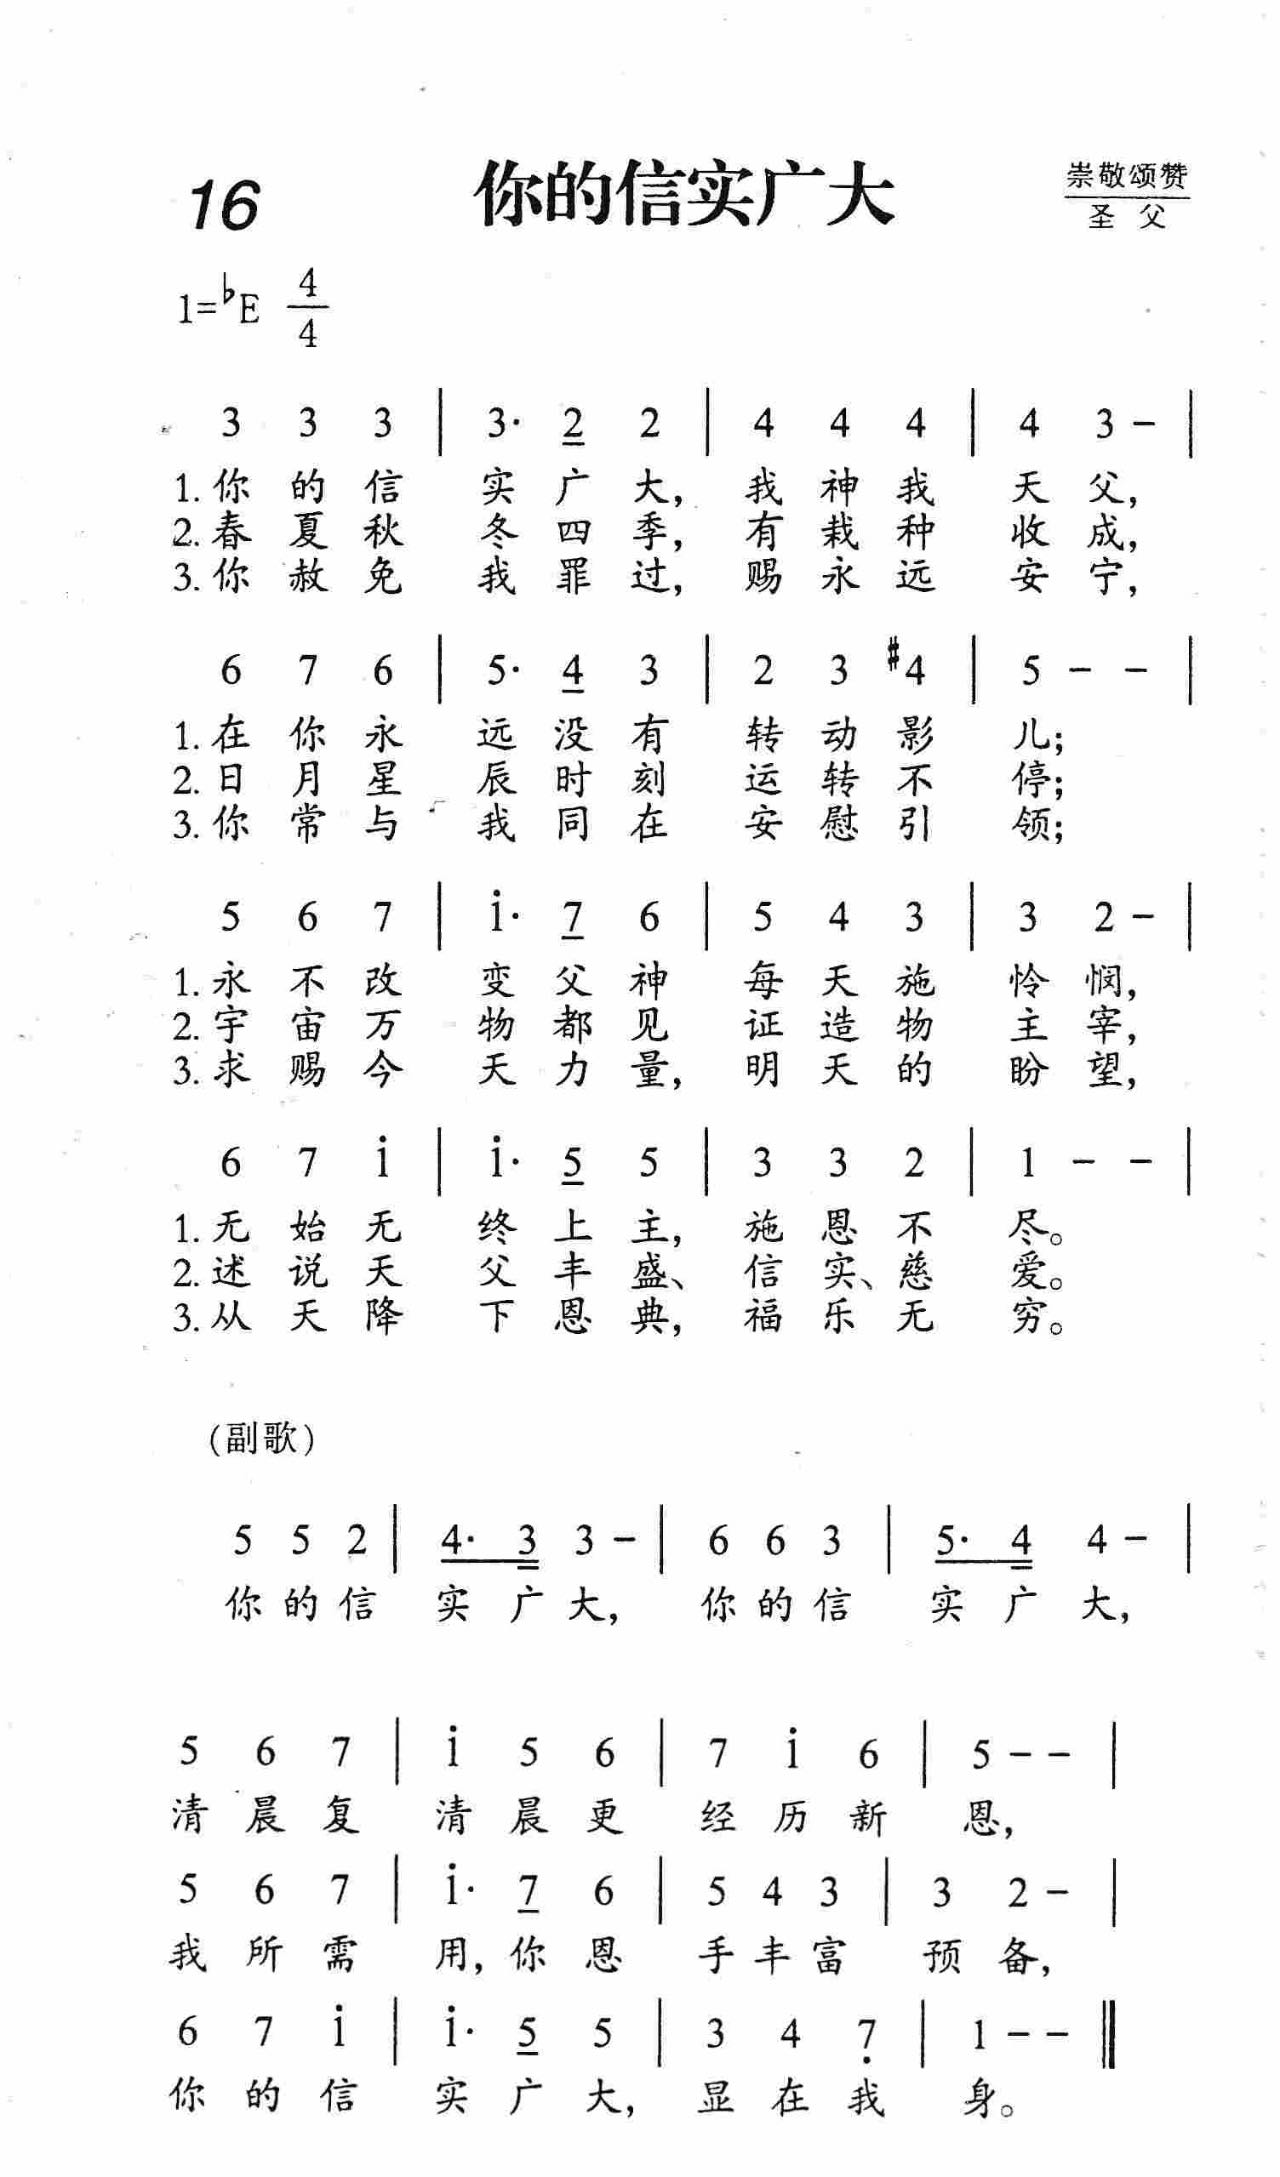 16
你的信实广大
崇敬颂赞
圣父
1=♭E 4/4
3 3 3 | 3· 2 2 | 4 4 4 | 4 3 - |
1.你的信实广大，我神我天父，
2.春夏秋冬四季，有栽种收成，
3.你赦免我罪过，赐永远安宁，
6 7 6 | 5· 4 3 | 2 3 #4 | 5 - - |
1.在你永远没有转动影儿；
2.日月星辰时刻运转不停；
3.你常与我同在安慰引领；
5 6 7 | i· 7 6 | 5 4 3 | 3 2 - |
1.永不改变父神每天施怜悯，
2.宇宙万物都见证造物主宰，
3.求赐今天力量，明天的盼望，
6 7 i | i· 5 5 | 3 3 2 | 1 - - |
1.无始无终上主，施恩不尽。
2.述说天父丰盛、信实、慈爱。
3.从天降下恩典，福乐无穷。
(副歌)
5 5 2 | 4· 3 3 - | 6 6 3 | 5· 4 4 - |
你的信实广大，你的信实广大，
5 6 7 | i 5 6 | 7 i 6 | 5 - - |
清晨复清晨更经历新恩，
5 6 7 | i· 7 6 | 5 4 3 | 3 2 - |
我所需用，你恩手丰富预备，
6 7 i | i· 5 5 | 3 4 7̣ | 1 - - ‖
你的信实广大，显在我身。